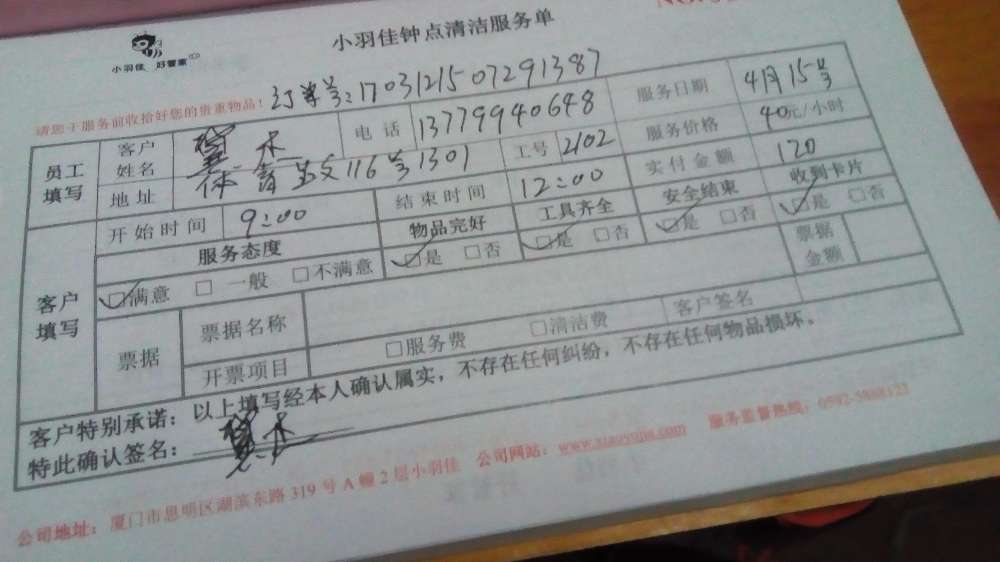 小羽佳 好管家
小羽佳钟点清洁服务单
请您于服务前收拾好您的贵重物品！ 订单号：1703121507291387
员工填写 客户姓名 电话 13779940648 服务日期 4月15号
地址 体育 116号1301 工号 2102 服务价格 40元/小时
客户填写 开始时间 9:00 结束时间 12:00 实付金额 120
服务态度 物品完好 工具齐全 安全结束 收到卡片
☑满意 □一般 □不满意 ☑是 □否 ☑是 □否 ☑是 □否 ☑是 □否
票据 票据名称 票据金额
开票项目 □服务费 □清洁费 客户签名
客户特别承诺：以上填写经本人确认属实，不存在任何纠纷，不存在任何物品损坏。
特此确认签名：
公司地址：厦门市思明区湖滨东路319号A幢2层小羽佳 公司网站：www.xiaoyujia.com 服务监督热线：